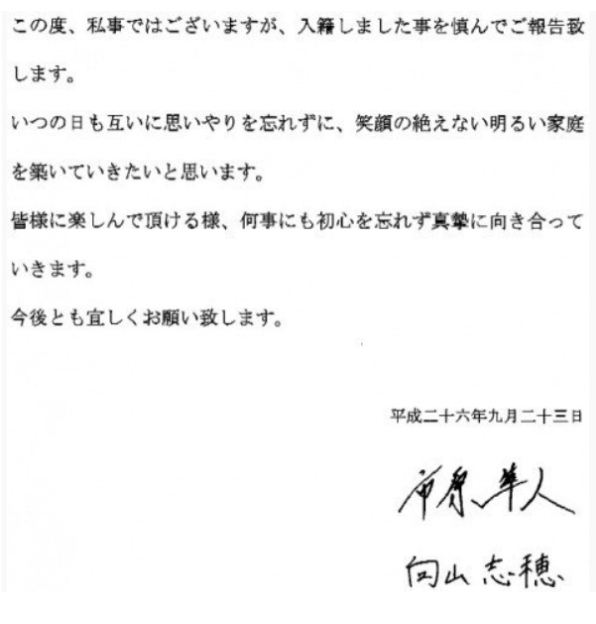 この度、私事ではございますが、入籍しました事を慎んでご報告致
します。
いつの日も互いに思いやりを忘れずに、笑顔の絶えない明るい家庭
を築いていきたいと思います。
皆様に楽しんで頂ける様、何事にも初心を忘れず真摯に向き合って
いきます。
今後とも宜しくお願い致します。
平成二十六年九月二十三日
市原隼人
向山志穂